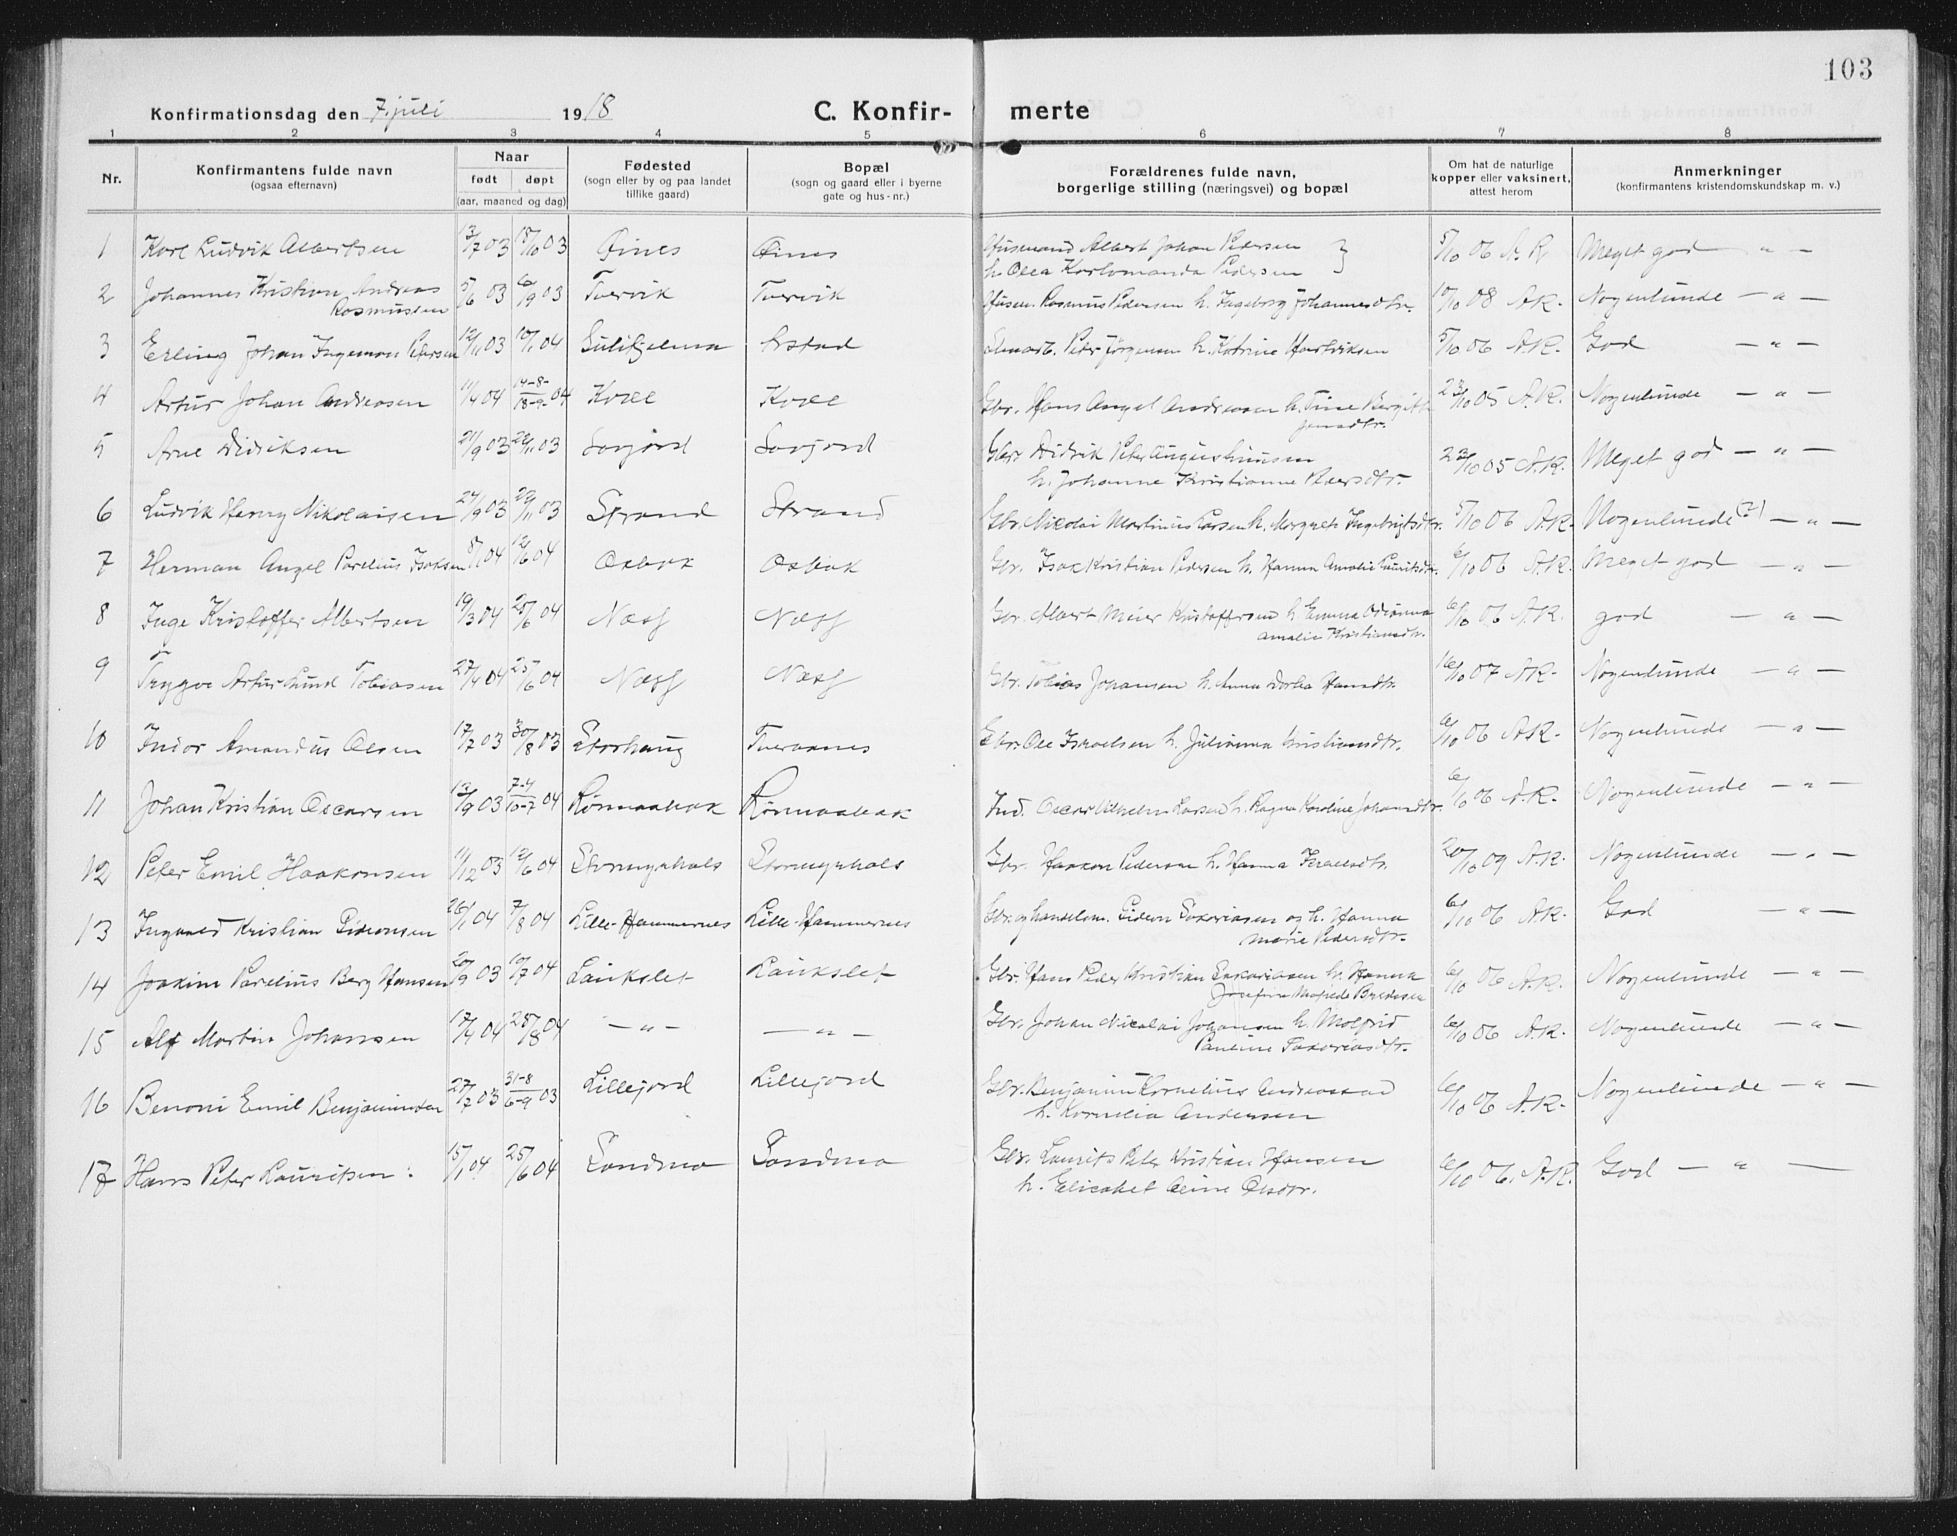 103
Konfirmationsdag den 7. juli 1918 C. Konfir- merte
1 2 3 4 5 6 7 8
Nr. Konfirmantens fulde navn (ogsaa efternavn) Naar født døpt (aar, maaned og dag) Fødested (sogn eller by og paa landet tillike gaard) Bopæl (sogn og gaard eller i byerne gate og hus-nr.) Forældrenes fulde navn, borgerlige stilling (næringsvei) og bopæl Om hat de naturlige kopper eller vaksinert, attest herom Anmerkninger (konfirmantens kristendomskundskap m. v.)
1 Karl Ludvik Albertsen 13/7 03 18/10 03 Øines Øines Husmand Albert Johan Pedersen 5/10 06 A.K. Meget god — " —
h. Olea Pedersen
2 Johannes Kristian Andreas 5/6 03 6/9 03 Tvervik Tvervik Husm. Rasmus Pedersen h. Ingeborg Johannesdtr. 10/10 08 A.K. Nogenlunde — " —
Rasmussen
3 Erling Johan Ingeman Petersen 12/11 03 10/1 04 Sulitjelma Peder Jørgensen h. Katrine Hartviksen 5/10 06 A.K. God — " —
4 Artur Johan Andreasen 11/4 04 14-8-/18-9- 04 Kvæl Kvæl Gbr. Hans Angel Andreasen h. Tine Bergitte 23/10 05 A.K. Nogenlunde — " —
Jensdtr.
5 Arne Didriksen 21/9 03 22/11 03 Sørfjord Sørfjord Gbr. Didrik Peter Augustinusen 23/10 05 A.K. Meget god — " —
h. Johanne Kristianne Pedersdtr.
6 Ludvik Henry Nikolaisen 27/9 03 22/11 03 Strand Strand Gbr. Nicolai Martinus Larsen h. Margrete Ingebrigtsdtr. 5/10 06 A.K. Nogenlunde (?) — " —
7 Herman Angel Parelius Isaksen 8/1 04 12/6 04 Osbak Osbak Gbr. Isak Kristian Pedersen h. Hanna Amalie Lauritsdtr. 6/10 06 A.K. Meget god — " —
8 Inge Kristoffer Albertsen 19/3 04 25/6 04 Næss Næss Gbr. Albert Meier Kristoffersen h. Emma 6/10 06 A.K. god — " —
Amalie Kristiansdtr.
9 Trygve Artur Lund Tobiasen 27/4 04 25/6 04 Næss Næss Gbr. Tobias Johansen h. Anna Dorthea Hansdtr. 16/10 07 A.K. Nogenlunde — " —
10 Indor Amandus Olsen 17/7 03 30/8 03 Storhaug Tveraanes Gbr. Ole Israelsen h. Julianna Kristiansdtr. 6/10 06 A.K. Nogenlunde — " —
11 Johan Kristian Oscarsen 13/9 03 7-4/10-7 04 Rønnaabak Rønnaabak Ind. Oscar Vilhelm Larsen h. Ragna Karoline Johansdtr. 6/10 06 A.K. Nogenlunde — " —
12 Peter Emil Haakonsen 11/12 03 12/6 04 Stormyrhals Stormyrhals Gbr. Haakon Pedersen h. Hanna Israelsdtr. 20/10 09 A.K. Nogenlunde — " —
13 Ingvald Kristian Gideonsen 26/1 04 7/8 04 Lille-Hammernes Lille-Hammernes Gbr. og handelsm. Gideon Sakariasen og h. Hanna 6/10 06 A.K. God — " —
Marie Pedersdtr.
14 Joakim Parelius Berg Hansen 20/9 03 10/7 04 Laukslet Laukslet Gbr. Hans Peder Kristian Sakariasen h. Hanna 6/10 06 A.K. Nogenlunde — " —
Josefine Bredesen
15 Alf Martin Johansen 17/4 04 28/8 04 — " — — " — Gbr. Johan Nicolai Johansen h. Molfrid 6/10 06 A.K. Nogenlunde — " —
Pauline Sakariasdtr.
16 Benoni Emil Benjaminsen 27/7 03 31-8/6-9 03 Lillejord Lillejord Gbr. Benjamin Kornelius Andreassen 6/10 06 A.K. Nogenlunde — " —
h. Kornelia Andersen
17 Hans Peter Lauritsen 15/1 04 25/6 04 Sandmo Sandmo Gbr. Laurits Peter Kristian Hansen 6/10 06. A.K. God — " —
h. Elisabet Oline Olsdtr.